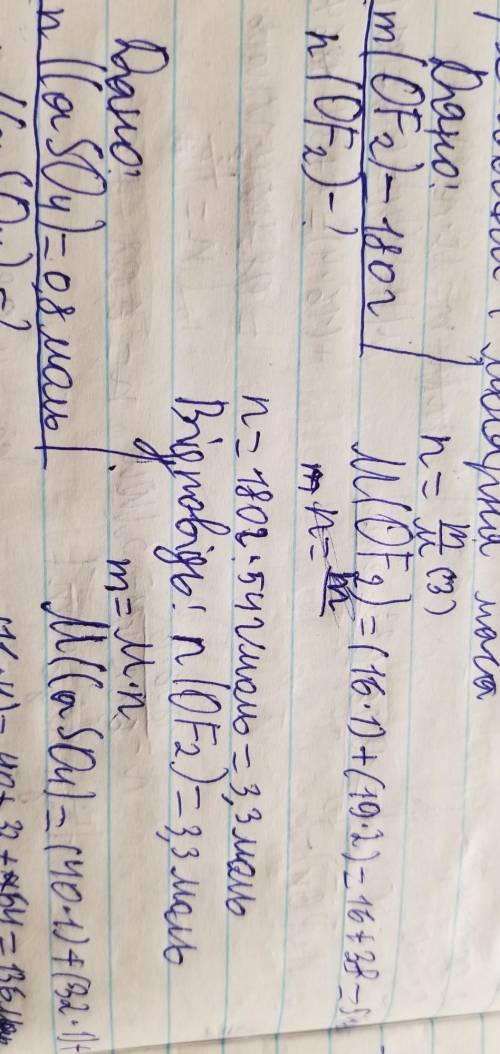 молярна маса
Дано:
m(OF2)-180г
n(OF2)-?
n=m/M (3)
M(OF2)=(16·1)+(19·2)=16+38=54
n=
n=180г·54г/моль=3,3моль
Відповідь: n(OF2)=3,3моль
Дано:
n(CaSO4)=0,8моль
(CaSO4)=?
m=M·n
M(CaSO4)=(40·1)+(32·1)+
=40+32+64=136